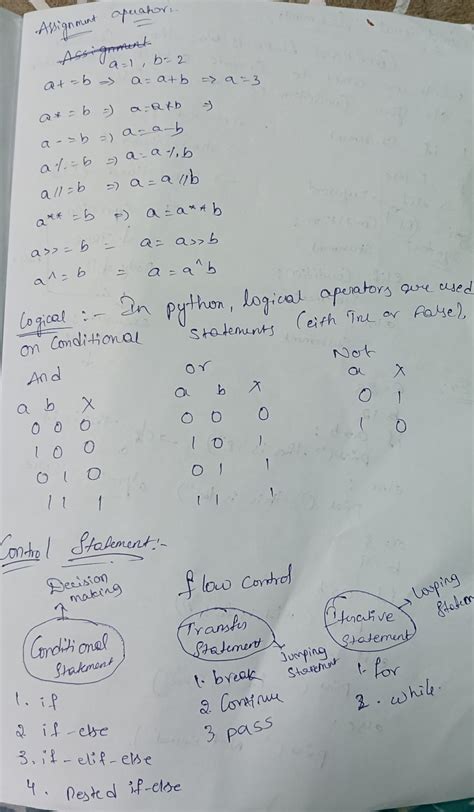 Assignment operator:-
Assignment
a=1, b=2
a+=b => a=a+b => a=3
a*=b => a=a*b =>
a-=b => a=a-b
a%=b => a=a%b
a//=b => a=a//b
a**=b => a=a**b
a>>=b = a=a>>b
a^=b = a=a^b
Logical :- In python, logical operators are used
on Conditional statements (eith True or False),
And or Not
a b x a b x a x
0 0 0 0 0 0 0 1
1 0 0 1 0 1 1 0
0 1 0 0 1 1
1 1 1 1 1 1
Control Statement:-
Decision making
flow control
Looping Statem
Conditional Statement
Transfer Statement
Jumping Statement
Iterative Statement
1. if
2 if-else
3. if-elif-else
4. Nested if-else
1. break
2 Continue
3 pass
1. for
2. while.